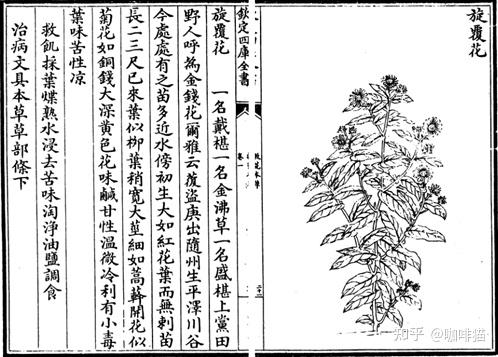 旋覆花
欽定四庫全書
救荒本草
卷一
旋覆花 一名戴椹一名金沸草一名盛椹上黨田
野人呼為金錢花爾雅云覆盜庚出隨州生平澤川谷
今處處有之苗多近水傍初生大如紅花葉而無刺苗
長二三尺已來葉似柳葉稍寬大莖細如蒿簳開花似
菊花如銅錢大深黃色花味鹹甘性溫微冷利有小毒
葉味苦性凉
救飢採葉煠熟水浸去苦味淘淨油鹽調食
治病文具本草草部條下
知乎 @咖啡猫